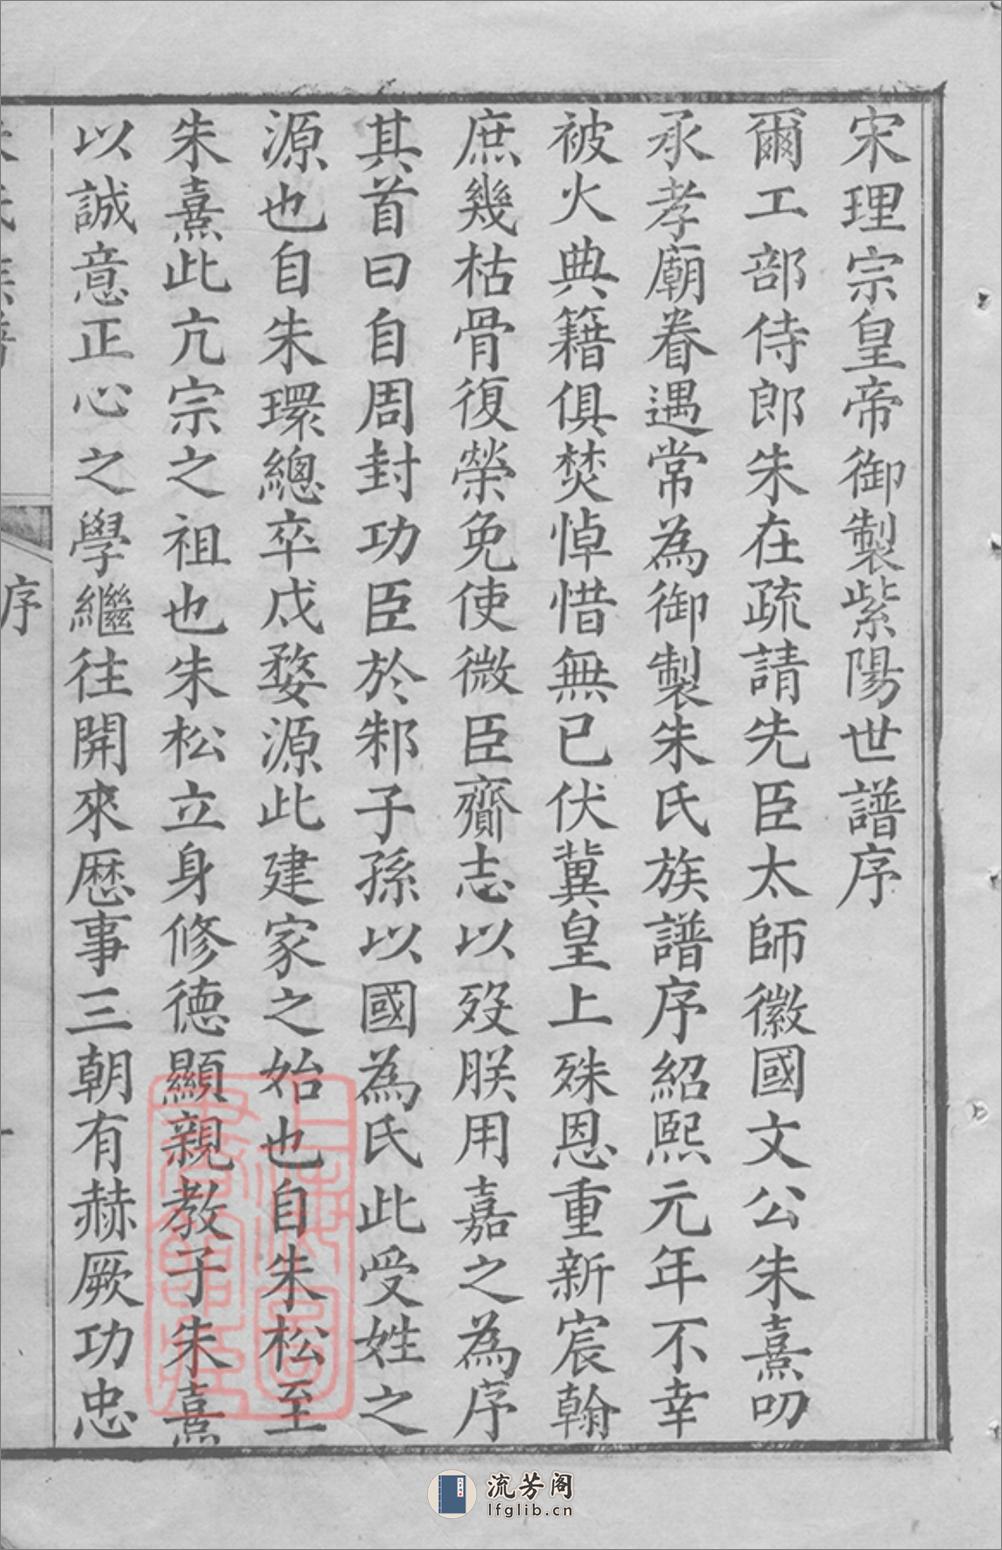 宋理宗皇帝御製紫陽世譜序
爾工部侍郎朱在疏請先臣太師徽國文公朱熹叨
承孝廟眷遇常為御製朱氏族譜序紹熙元年不幸
被火典籍俱焚悼惜無已伏冀皇上殊恩重新宸翰
庶幾枯骨復榮免使微臣齎志以歿朕用嘉之為序
其首曰自周封功臣於邾子孫以國為氏此受姓之
源也自朱環總卒戍婺源此建家之始也自朱松至
朱熹此亢宗之祖也朱松立身修德顯親教子朱熹
以誠意正心之學繼往開來歷事三朝有赫厥功忠
序
一
上海圖書館藏
流芳阁
lfglib.cn